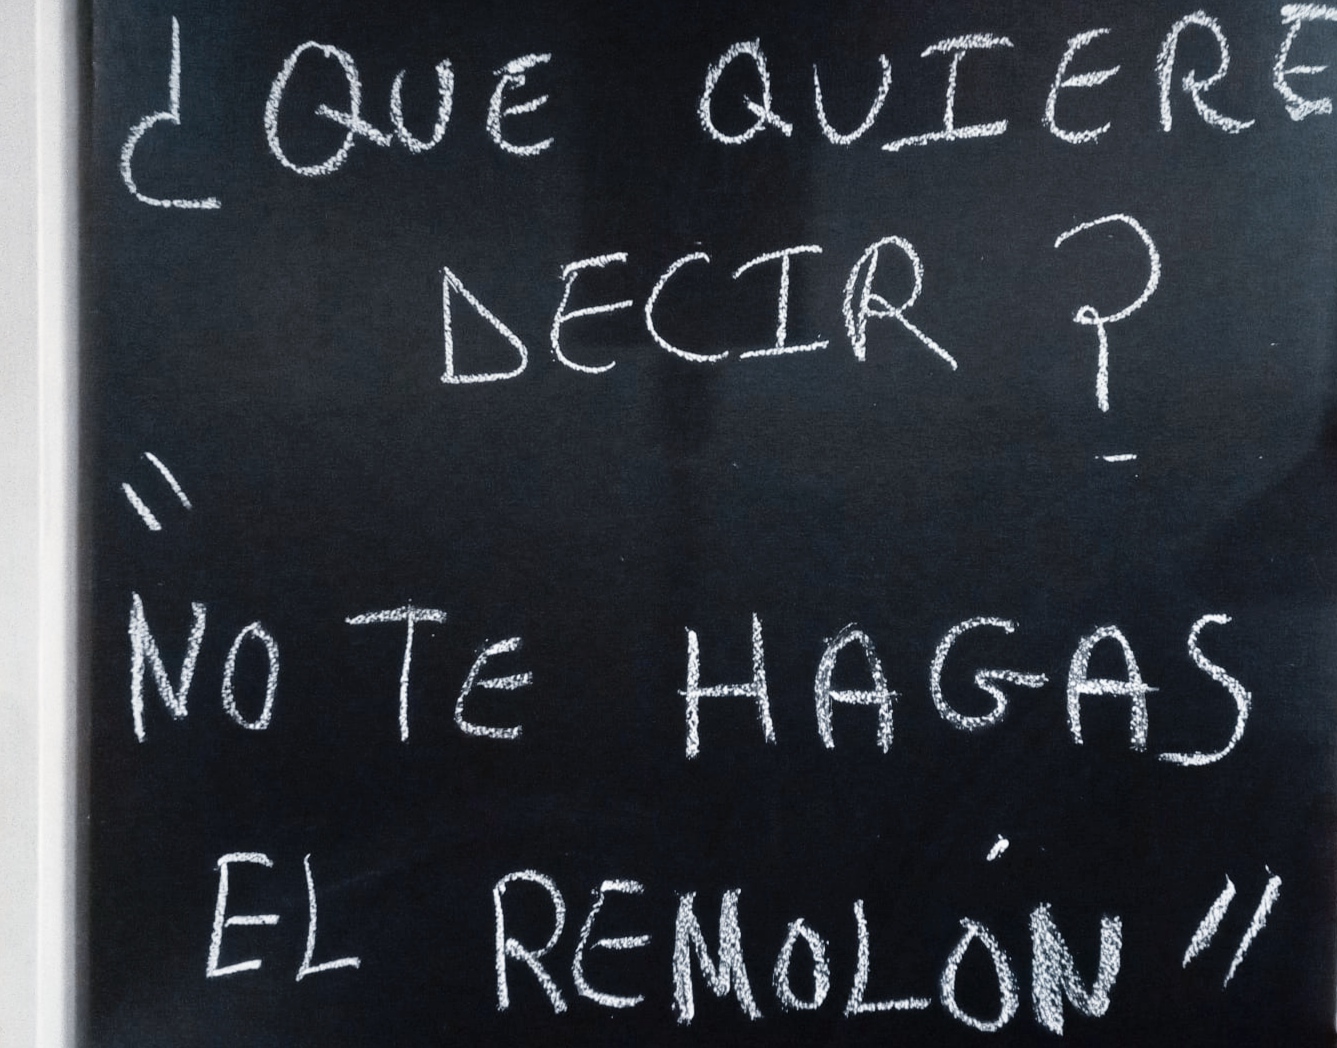 ¿QUE QUIERE
DECIR?
"
NO TE HAGAS
EL REMOLÓN"